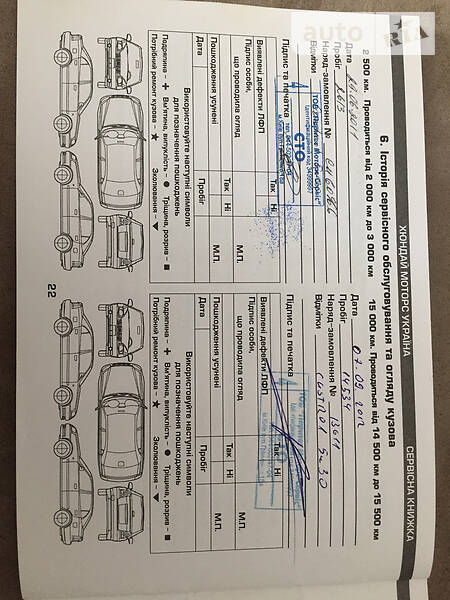 ХЮНДАЙ МОТОРС УКРАЇНА
СЕРВІСНА КНИЖКА
6. Історія сервісного обслуговування та огляду кузова
2 500 км. Проводиться від 2 000 км до 3 000 км
Дата
Пробіг 2613
Наряд-замовлення №
Відмітки
Підпис та печатка
СТО
Виявлені дефекти ЛФП
Так
Ні
Підпис особи,
що проводила огляд
М.П.
Пошкодження усунені
Так
Ні
Дата
Пробіг
М.П.
Використовуйте наступні символи
для позначення пошкоджень
Подряпина - + Вм'ятина, випуклість - ● Тріщина, розрив - ■
Потрібний ремонт кузова - ★ Эколювання - ▼
15 000 км. Проводиться від 14 500 км до 15 500 км
Дата 07.09.2012
Пробіг 14334
Наряд-замовлення №
Відмітки 5W30
Підпис та печатка
Виявлені дефекти ЛФП
Так
Ні
Підпис особи,
що проводила огляд
М.П.
Пошкодження усунені
Так
Ні
Дата
Пробіг
М.П.
Використовуйте наступні символи
для позначення пошкоджень
Подряпина - + Вм'ятина, випуклість - ● Тріщина, розрив - ■
Потрібний ремонт кузова - ★ Эколювання - ▼
22
auto
RIA